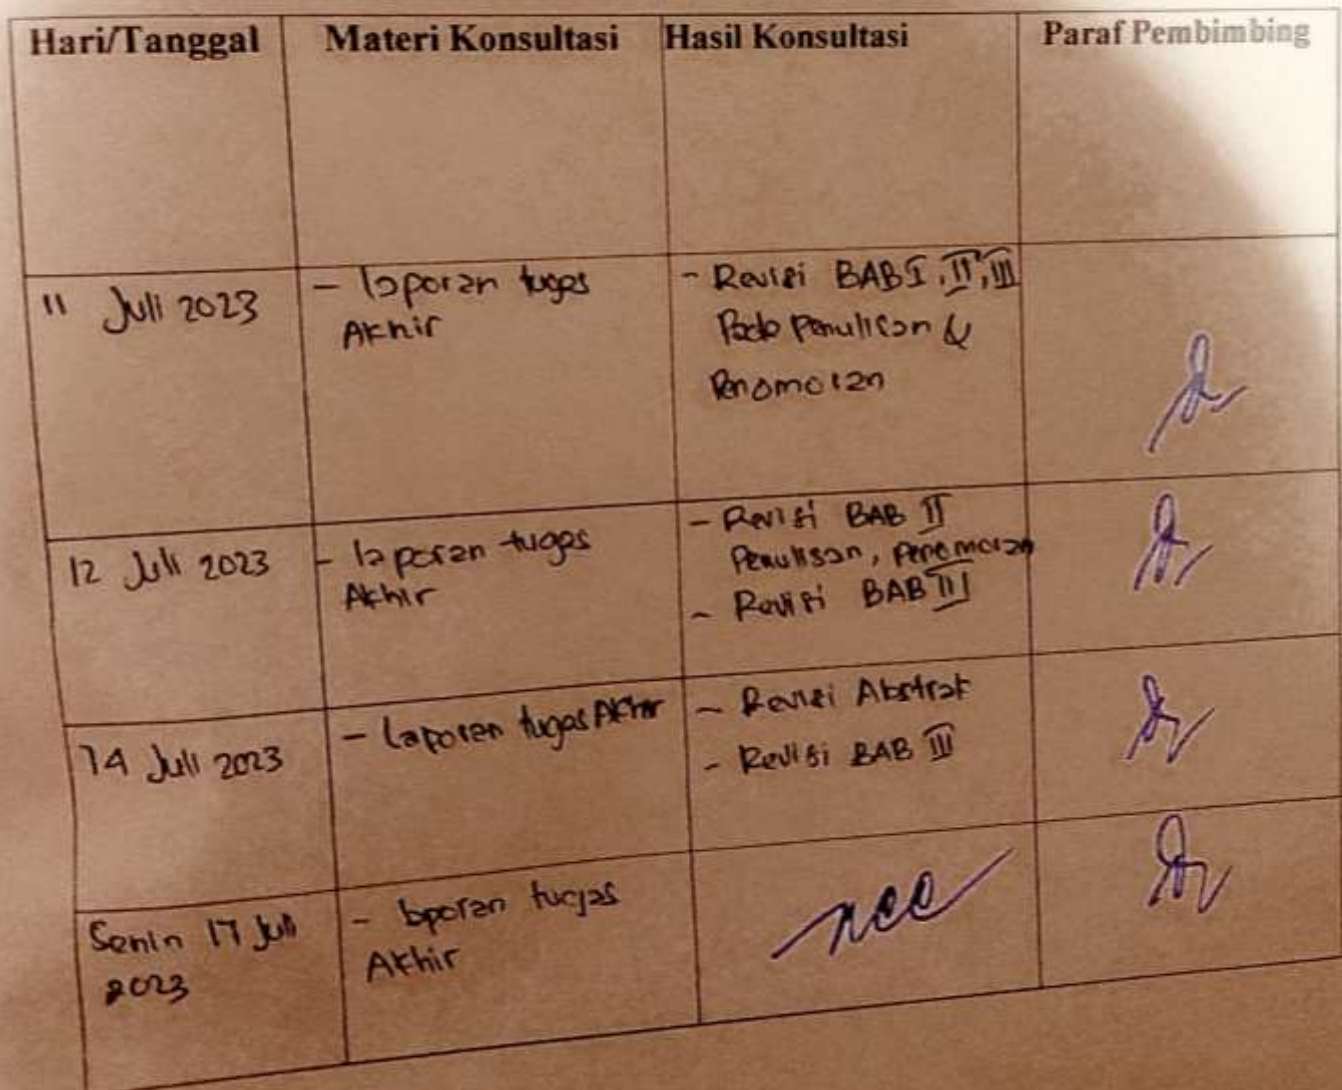 Hari/Tanggal
Materi Konsultasi
Hasil Konsultasi
Paraf Pembimbing
11 Juli 2023
- laporan tugas
Akhir
- Revisi BAB I, II, III
Pada Penulisan &
Penomoran
12 Juli 2023
- laporan tugas
Akhir
- Revisi BAB II
Penulisan, Penomoran
- Revisi BAB III
14 Juli 2023
- laporan tugas Akhir
- Revisi Abstrak
- Revisi BAB III
Senin 17 Juli
2023
- laporan tugas
Akhir
acc